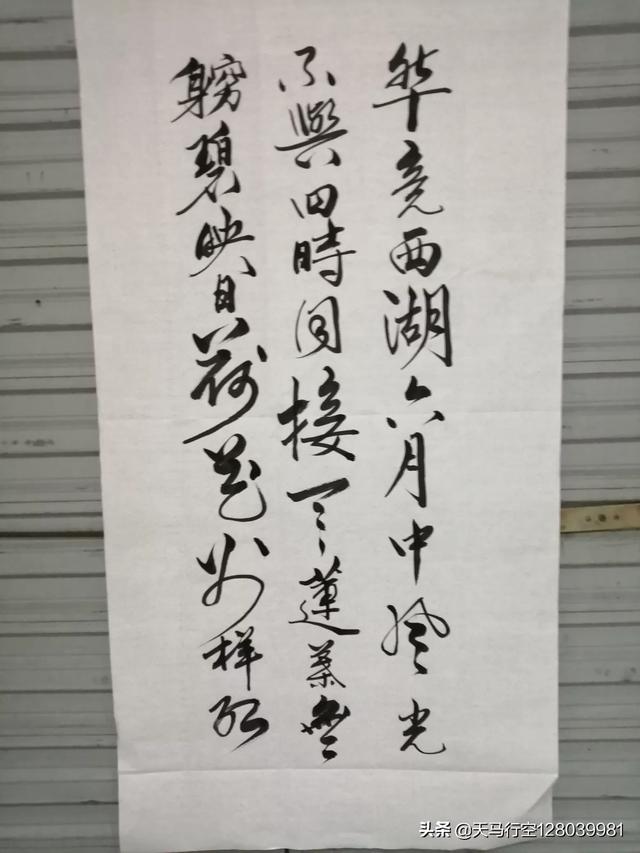 毕竟西湖六月中风光
不與四時同接天蓮葉無
窮碧映日荷花别样红
头条 @天马行空128039981